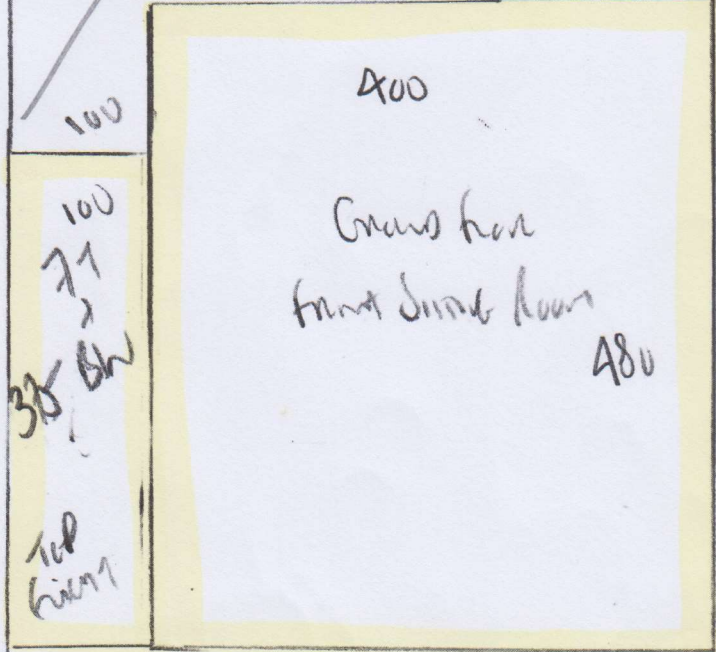 100
400
Ground Floor
Front Dining Room
480
100
71
x
375 BW
Top
Flight